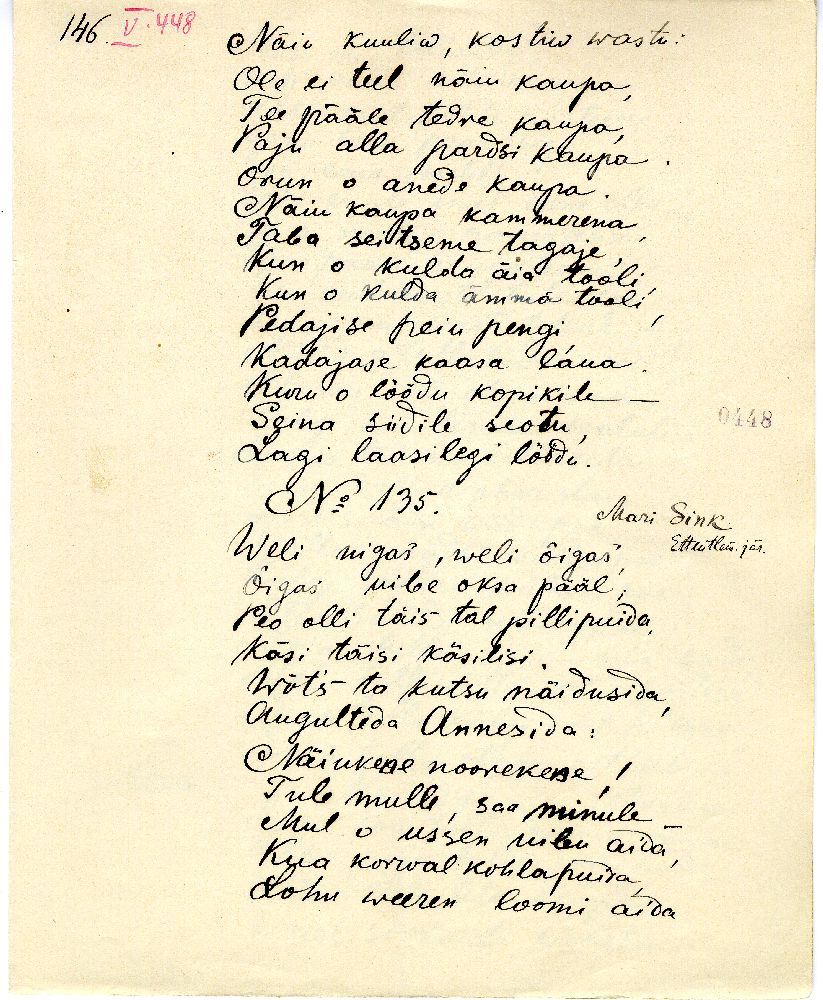 146. V. 448
Näiu kuuliw, kostiw wastu:
Ole ei teel näiu kaupa,
Tee pääle tedre kaupa,
Paju alla pardsi kaupa.
Orun o anede kaupa.
Näiu kaupa kammerena,
Taba seitseme tagaje,
Kun o kulda äia tooli,
Kun o kulda ämmä tooli,
Pedajise peiu pengi
Kadajase kaasa laua.
Kuru o löödu kopikile —
Seina siidile seotu,
Lagi laasilegi löödu.
0448
No 135.
Mari Sink
Weli nigas, weli õigas,
Õigas uibe oksa pääl,
Peo olli täis tal pillipuida,
Käsi täisi käsilisi.
Wõts ta kutsu näidusida,
Augulteda Annesida:
Näiukene noorekene!
Tule mulle, saa minule
Mul o ussen uibu aida,
Kua korwal kohlapuida,
Lohu weeren loomi aida